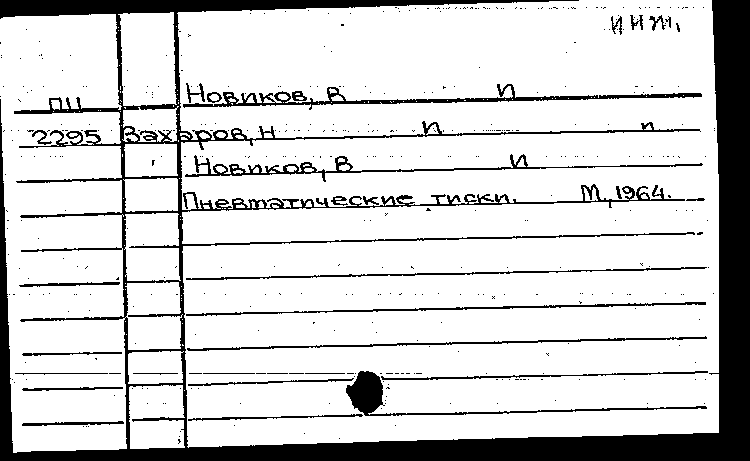 инт.
ПЦ Новиков, В И
2295 Захаров, Н П п
Новиков, В И
Пневматические тиски. М, 1964.